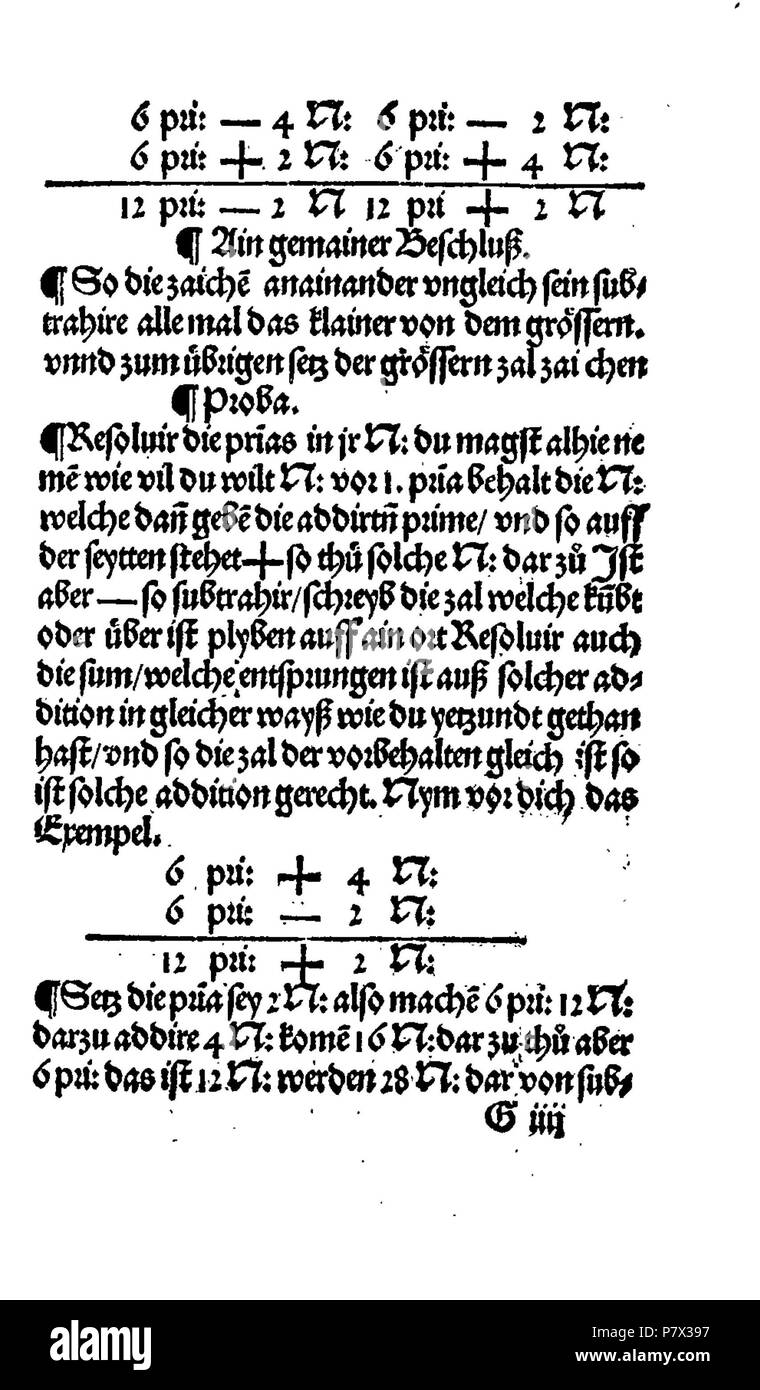 6 pri: — 4 N: 6 pri: — 2 N:
6 pri: + 2 N: 6 pri: + 4 N:
12 pri: — 2 N 12 pri + 2 N
¶ Ain gemainer Beschluß.
¶ So die zaichē anainander vngleich sein sub⸗
trahire alle mal das klainer von dem grössern.
vnnd zum übrigen setz der grössern zal zaichen
¶ Proba.
¶ Resoluir die prīas in jr N: du magst alhie ne
mē wie vil du wilt N: vor 1. prīa behalt die N:
welche dañ gebē die addirtñ prime/ vnd so auff
der seytten stehet + so thů solche N: dar zů Ist
aber — so subtrahir/schreyb die zal welche kūbt
oder über ist plyben auff ain ort Resoluir auch
die sum/welche entsprungen ist auß solcher ad⸗
dition in gleicher wayß wie du yetzundt gethan
hast/vnd so die zal der vorbehalten gleich ist so
ist solche addition gerecht. Nym vor dich das
Exempel.
6 pri: + 4 N:
6 pri: — 2 N:
12 pri: + 2 N:
¶ Setz die prīa sey 2 N: also machē 6 pri: 12 N:
darzu addire 4 N: komē 16 N: dar zu thů aber
6 pri: das ist 12 N: werden 28 N: dar von sub⸗
G iiij
alamy
Image ID: P7X397
www.alamy.com